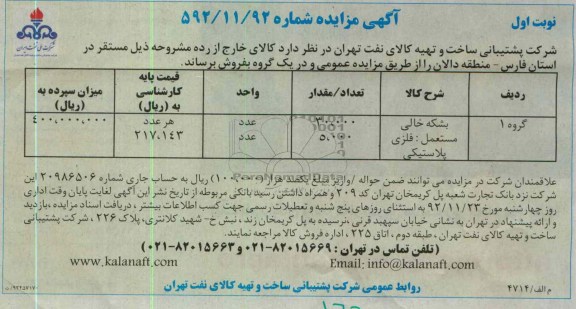 نوبت اول
آگهی مزایده شماره ۵۹۲/۱۱/۹۲
شرکت پشتیبانی ساخت و تهیه کالای نفت تهران در نظر دارد کالای خارج از رده مشروحه ذیل مستقر در
استان فارس - منطقه دالان را از طریق مزایده عمومی و در یک گروه بفروش برساند.
ردیف شرح کالا تعداد/مقدار واحد قیمت پایه کارشناسی به (ریال) میزان سپرده به (ریال)
گروه ۱ بشکه خالی عدد هر عدد ۴۰۰,۰۰۰,۰۰۰
مستعمل : فلزی ۵,۰۰۰ عدد ۲۱۷,۱۴۳
پلاستیکی
علاقمندان شرکت در مزایده می توانند ضمن حواله /واریز مبلغ یکصد هزار ریال به حساب جاری شماره ۲۰۹۸۶۵۰۶ این
شرکت نزد بانک تجارت شعبه پل کریمخان تهران کد ۲۰۹ و همراه داشتن رسید بانکی مربوطه از تاریخ نشر این آگهی لغایت پایان وقت اداری
روز چهارشنبه مورخ ۹۲/۱۱/۲۳ به استثنای روزهای پنج شنبه و تعطیلات رسمی جهت کسب اطلاعات بیشتر ، دریافت اسناد مزایده ،بازدید
و ارائه پیشنهاد در تهران به نشانی خیابان سپهبد قرنی ،نرسیده به پل کریمخان زند ، نبش خ- شهید کلانتری، پلاک ۲۲۶ ، شرکت پشتیبانی
ساخت و تهیه کالای نفت تهران ، طبقه دوم ، اتاق ۲۲۵ ، اداره فروش کالا مراجعه نمایند.
(تلفن تماس در تهران : ۸۲۰۱۵۶۶۹-۰۲۱ و ۸۲۰۱۵۶۶۳-۰۲۱)
Email: info@kalanaft.com www.kalanaft.com
روابط عمومی شرکت پشتیبانی ساخت و تهیه کالای نفت تهران
م الف/ ۴۷۱۴